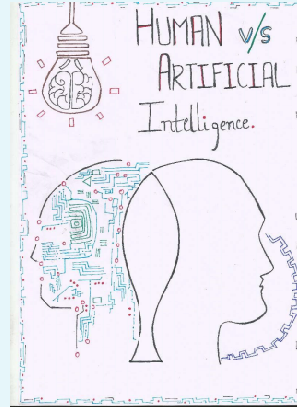 HUMAN v/s
ARTIFICIAL
Intelligence.